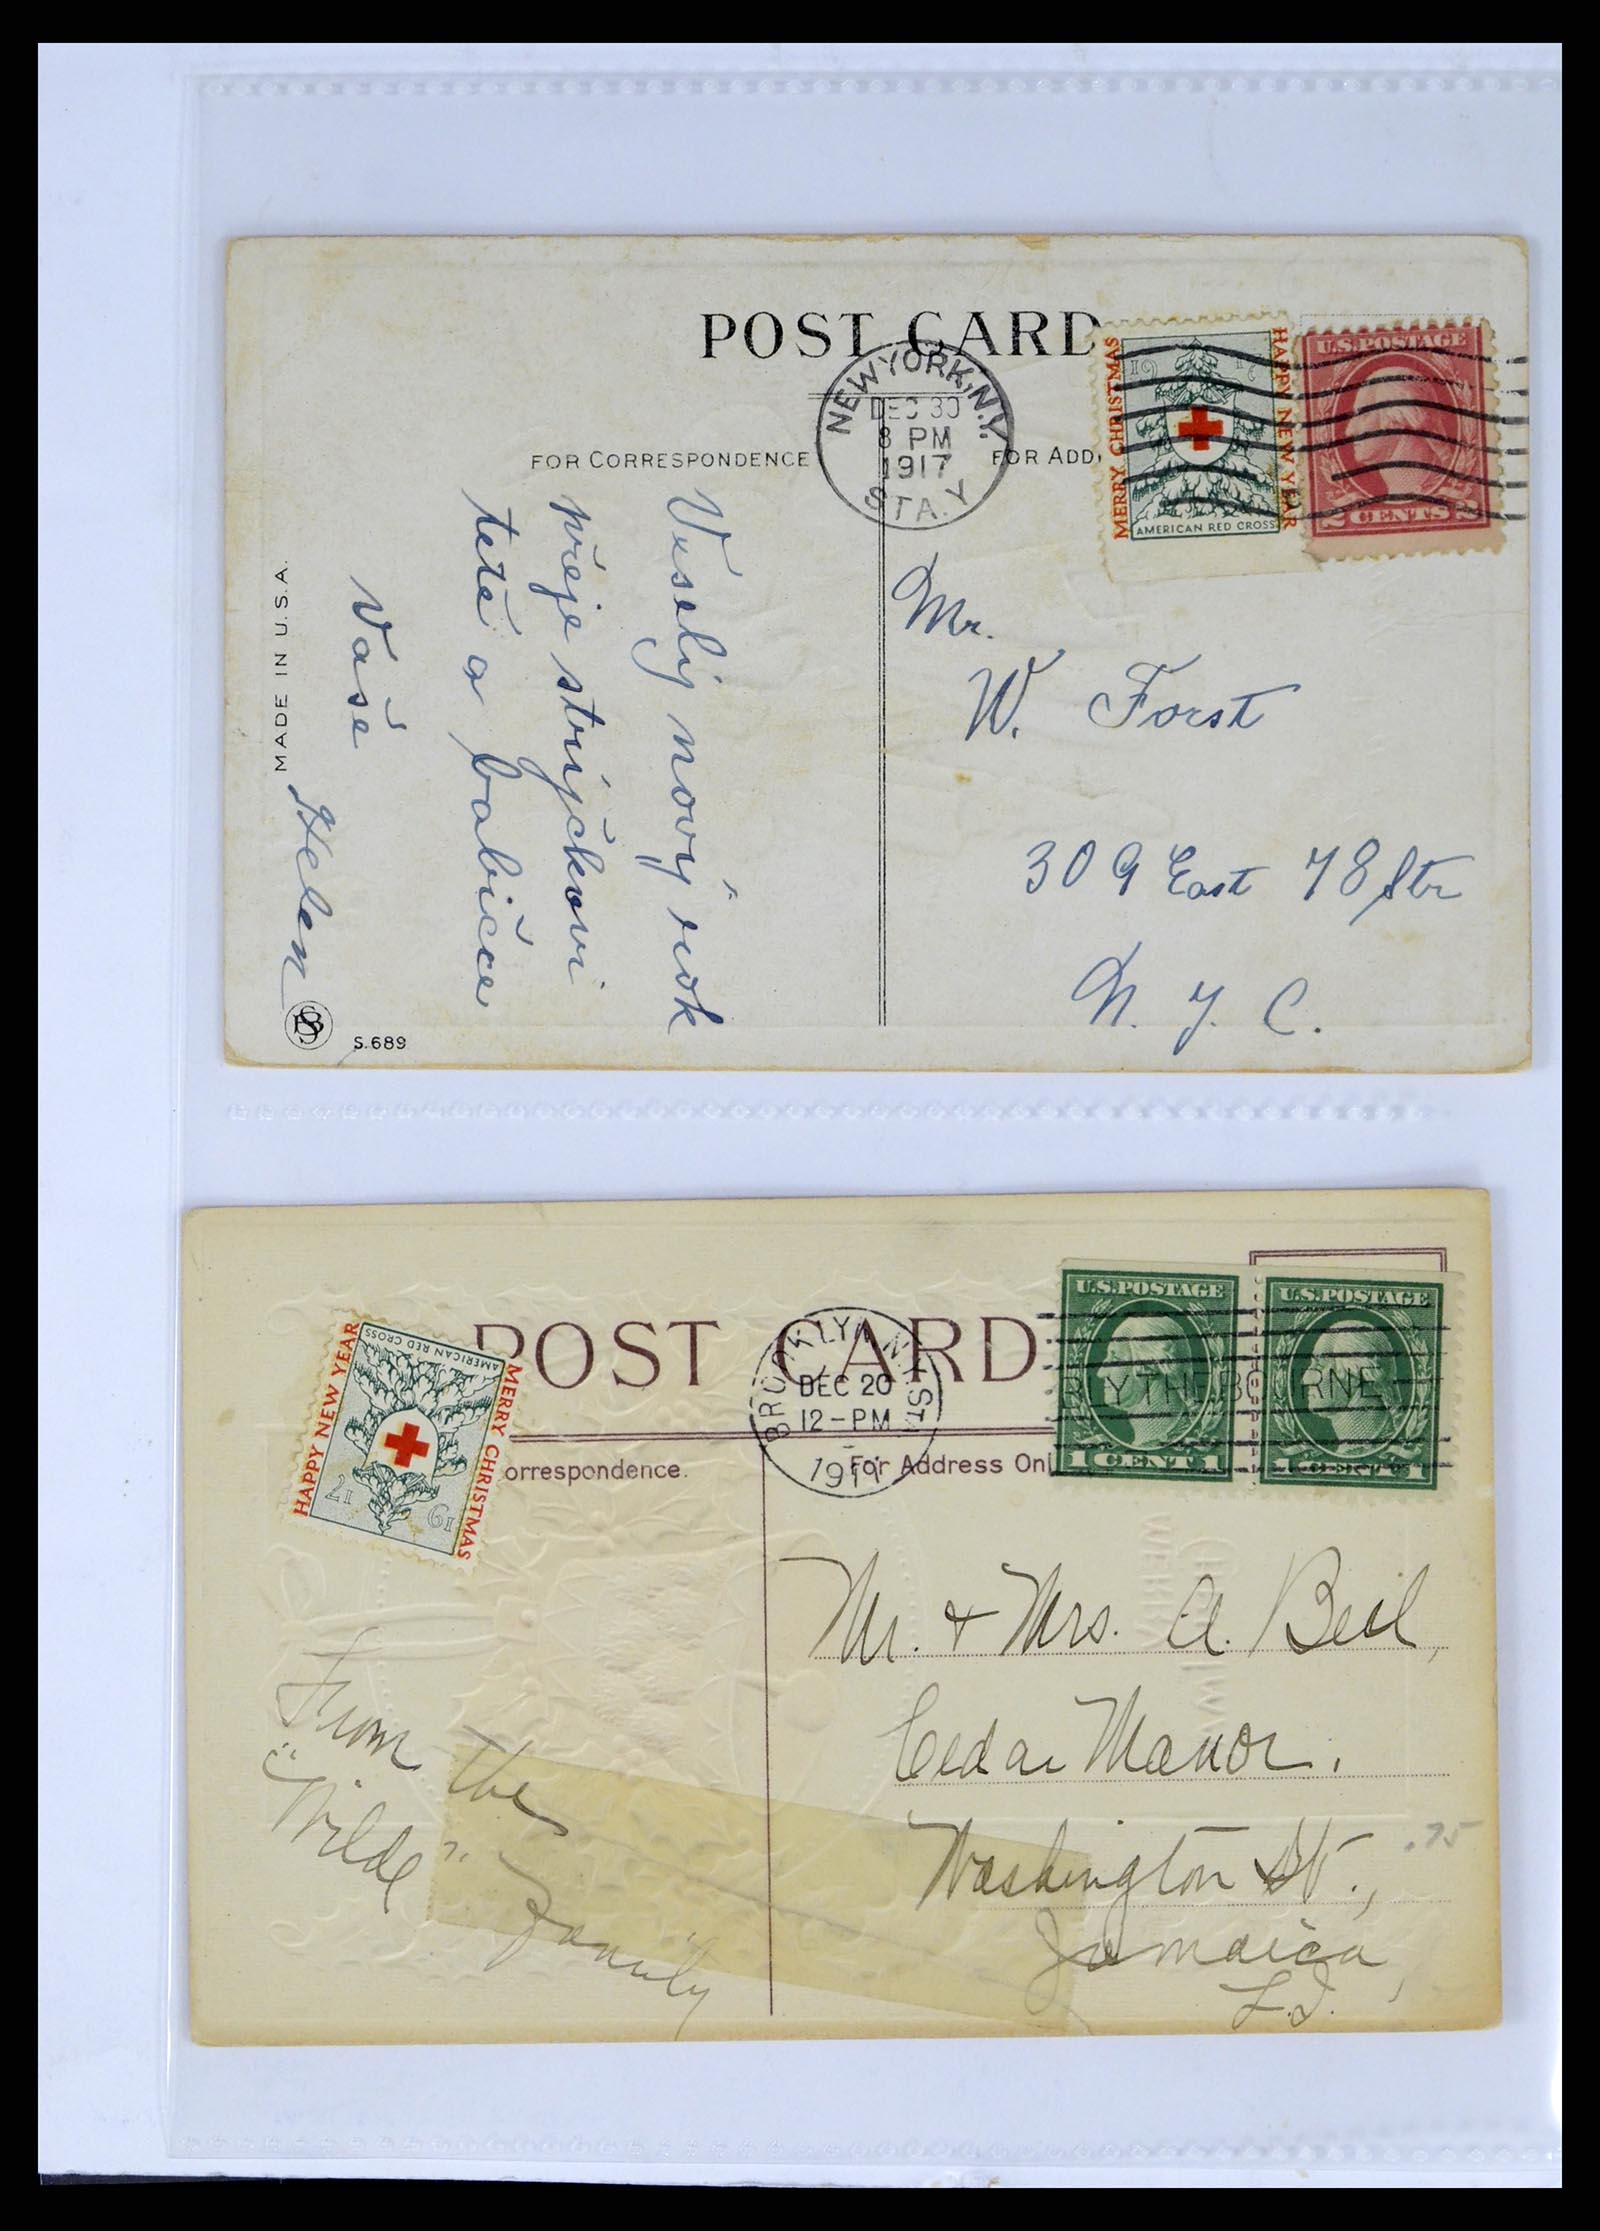 POST CARD
NEW YORK, N.Y.
DEC 30
8 PM
1917
STA. Y
FOR CORRESPONDENCE
FOR ADD
MERRY CHRISTMAS
HAPPY NEW YEAR
19 17
AMERICAN RED CROSS
U.S. POSTAGE
2 CENTS 2
Veselý nový rok
přeje strýčkovi
tetě a babičce
Vaše
Helen
MADE IN U.S.A.
S.689
Mr.
W. Forst
309 East 78 Str
N. Y. C.
POST CARD
HAPPY NEW YEAR
MERRY CHRISTMAS
AMERICAN RED CROSS
19 17
BROOKLYN, N.Y. STA
DEC 20
12-PM
BLYTHEBOURNE
U.S. POSTAGE
1 CENT 1
U.S. POSTAGE
1 CENT 1
orrespondence.
For Address Onl
From the
"Wilde" Family
Mr. & Mrs. A. Beil,
Cedar Manor.
Washington St.,
Jamaica,
L.I.
.75